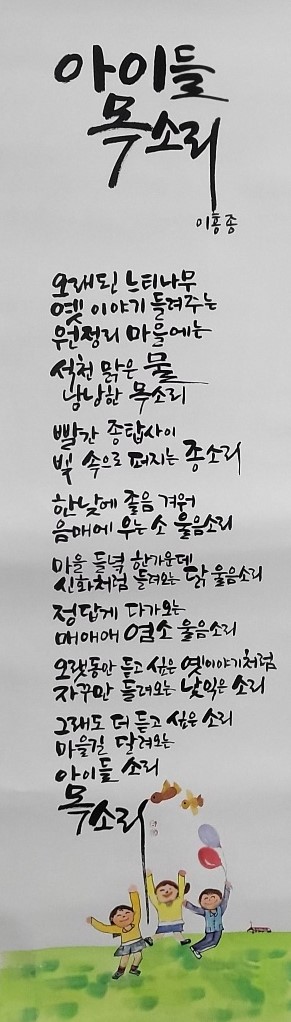 아이들
목소리
이흥종
오래된 느티나무
옛 이야기 들려주는
원정리 마을에는
석천 맑은 물
낭낭한 목소리
빨간 종탑사이
빛 속으로 퍼지는 종소리
한낮에 졸음 겨워
음매에 우는 소 울음소리
마을 들녘 한가운데
신화처럼 들려오는 닭 울음소리
정답게 다가오는
매애애 염소 울음소리
오랫동안 듣고 싶은 옛이야기처럼
자꾸만 들려오는 낯익은 소리
그래도 더 듣고 싶은 소리
마을길 달려오는
아이들 소리
목소리